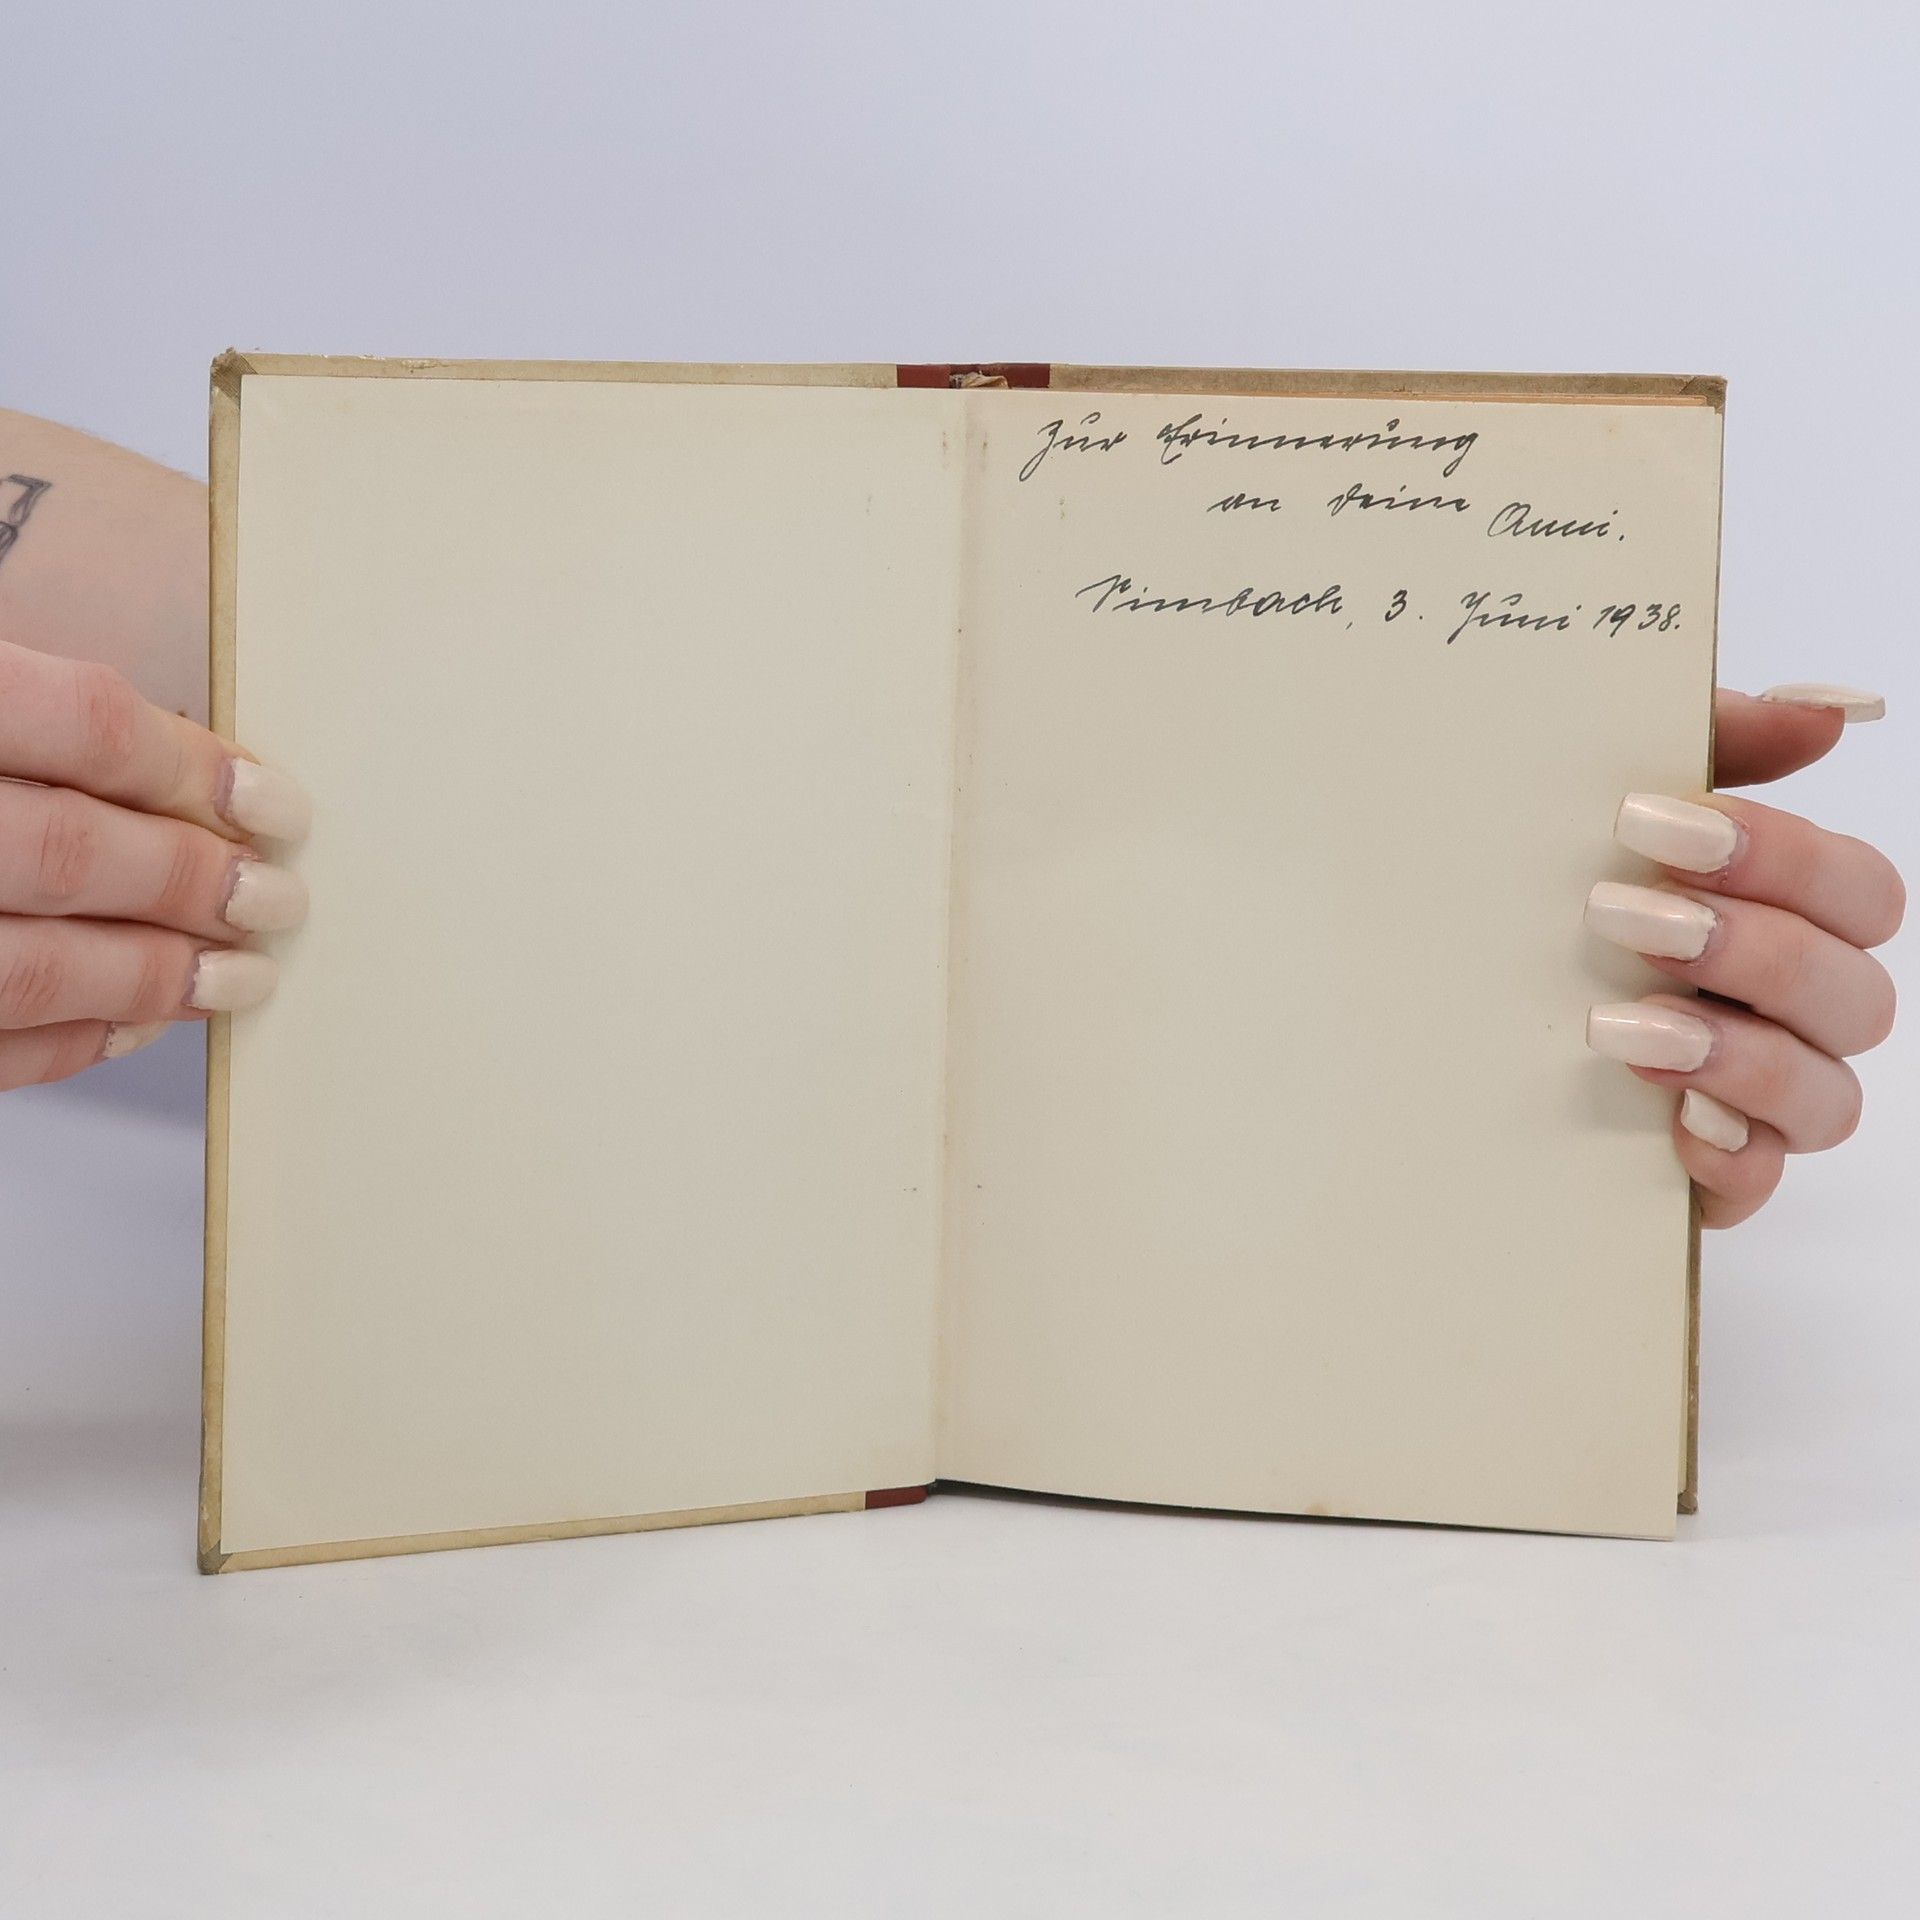 Zur Erinnerung
an Deine Anni.
Simbach, 3. Juni 1938.